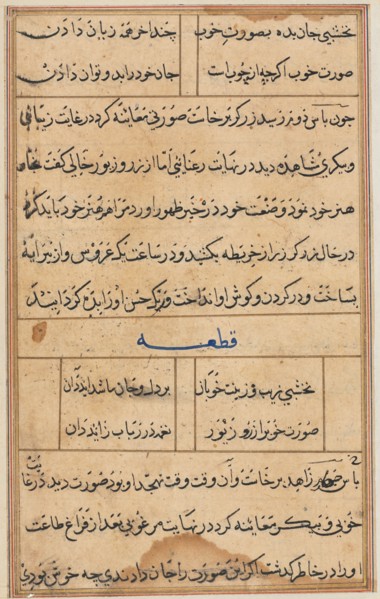 نخشبی جان بده بصورت خوب چند اخر غم زبان دادن
صورت خوب اگرچه از چوبست جان خود را بدو توان دادن
چون پاس دوم رسید زرگر برخاست صورتی معاینه کرد در غایت زیبائی
و پیکری مشاهده دید در نهایت رعنائی اما از زر و زیور خالی گفت
هنر خود نمود و صنعت خود در حیز ظهور اورد مرا هم هنر خود باید کرد
در حال زرگر زر از خریطه بکشید و در ساعت یک عروس وار پیرایه
بساخت و در گردن و گوش او انداخت و زیک حسن او را بده گردانید
قطعه
نخشبی زیب و زینت خوبان بر دل و جان
صورت خوب را زر و زیور
پاس سوم زاهد برخاست و آن وقت وقت تهجد او بود صورت دید در غایت
خوبی و پیکر معاینه کرد در نهایت مرغوبی بعد از فراغ طاعت
او را در خاطر گذشت اگر این صورت را جان دادندی چه خوش بودی